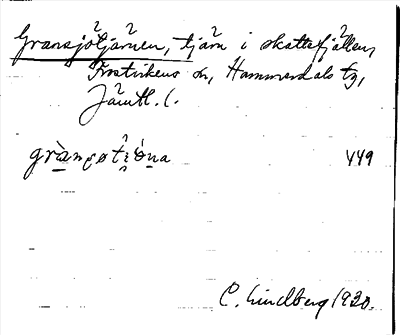 Gransjötjärnen, tjärn i skattefjällen,
Frostvikens sn, Hammerdals tg,
Jämtl. l.
449
C. Lindberg 1920.